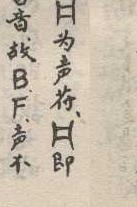 为声符、即
音,故B.F.声不